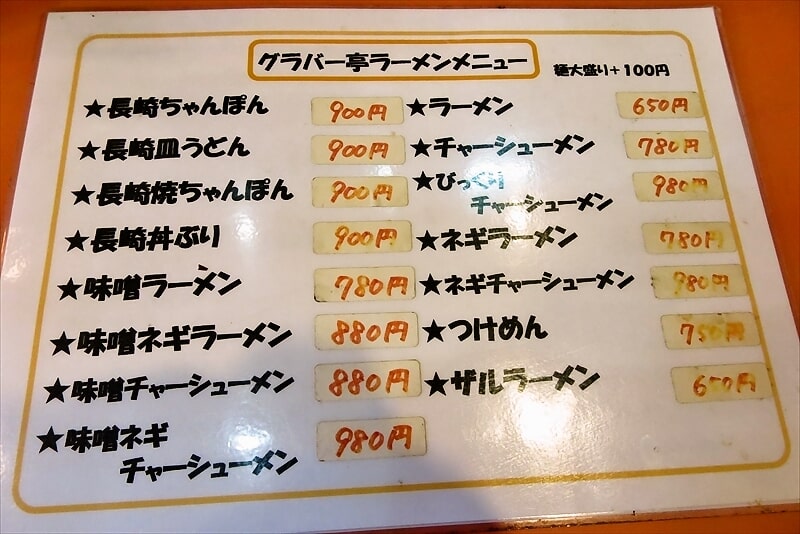 グラバー亭ラーメンメニュー
麺大盛り+100円
★長崎ちゃんぽん 900円
★長崎皿うどん 900円
★長崎焼ちゃんぽん 900円
★長崎丼ぶり 900円
★味噌ラーメン 780円
★味噌ネギラーメン 880円
★味噌チャーシューメン 880円
★味噌ネギ
チャーシューメン 980円
★ラーメン 650円
★チャーシューメン 780円
★びっくり 980円
チャーシューメン
★ネギラーメン 780円
★ネギチャーシューメン 980円
★つけめん 750円
★ザルラーメン 650円